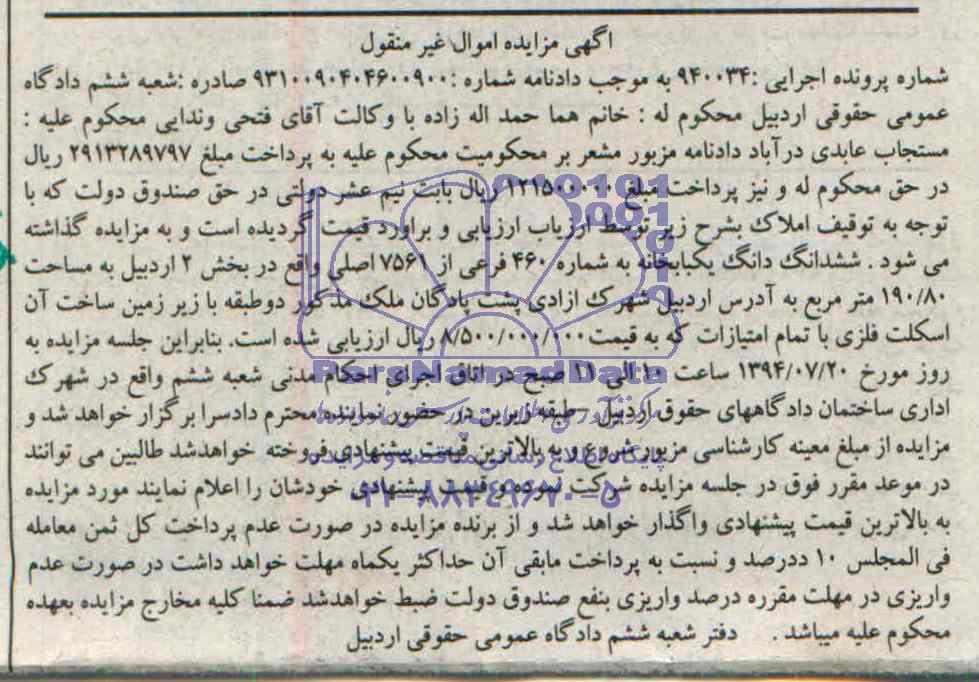 اگهی مزایده اموال غیر منقول
شماره پرونده اجرایی :۹۴۰۰۳۴ به موجب دادنامه شماره :۹۳۱۰۰۹۰۴۰۴۶۰۰۹۰۰ صادره :شعبه ششم دادگاه
عمومی حقوقی اردبیل محکوم له : خانم هما حمد اله زاده با وکالت آقای فتحی وندایی محکوم علیه :
مستجاب عابدی درآباد دادنامه مزبور مشعر بر محکومیت محکوم علیه به پرداخت مبلغ ۲۹۱۳۲۸۹۷۹۷ ریال
در حق محکوم له و نیز پرداخت مبلغ ۱۲۱۵۰۰۰۰۰ ریال بابت نیم عشر دولتی در حق صندوق دولت که با
توجه به توقیف املاک بشرح زیر توسط ارزیاب ارزیابی و براورد قیمت گردیده است و به مزایده گذاشته
می شود . ششدانگ دانگ یکبابخانه به شماره ۴۶۰ فرعی از ۷۵۶۱ اصلی واقع در بخش ۲ اردبیل به مساحت
۱۹۰/۸۰ متر مربع به آدرس اردبیل شهرک ازادی پشت پادگان ملک مذکور دوطبقه با زیر زمین ساخت آن
اسکلت فلزی با تمام امتیازات که به قیمت ۸/۵۰۰/۰۰۰/۰۰۰ ریال ارزیابی شده است. بنابراین جلسه مزایده به
روز مورخ ۱۳۹۴/۰۷/۲۰ ساعت ۱۰ الی ۱۱ صبح در اتاق اجرای احکام مدنی شعبه ششم واقع در شهرک
اداری ساختمان دادگاههای حقوق اردبیل _طبقه زیرین در حضور نماینده محترم دادسرا برگزار خواهد شد و
مزایده از مبلغ معینه کارشناسی مزبور شروع و به بالاترین قیمت پیشنهادی فروخته خواهدشد طالبین می توانند
در موعد مقرر فوق در جلسه مزایده شرکت نموده و قیمت پیشنهادی خودشان را اعلام نمایند مورد مزایده
به بالاترین قیمت پیشنهادی واگذار خواهد شد و از برنده مزایده در صورت عدم پرداخت کل ثمن معامله
فی المجلس ۱۰ ددرصد و نسبت به پرداخت مابقی آن حداکثر یکماه مهلت خواهد داشت در صورت عدم
واریزی در مهلت مقرره درصد واریزی بنفع صندوق دولت ضبط خواهدشد ضمنا کلیه مخارج مزایده بعهده
محکوم علیه میباشد . دفتر شعبه ششم دادگاه عمومی حقوقی اردبیل
ParsNamadData
پایگاه اطلاع رسانی مناقصه و مزایده
۰۲۱-۸۸۳۴۹۶۷۰-۵